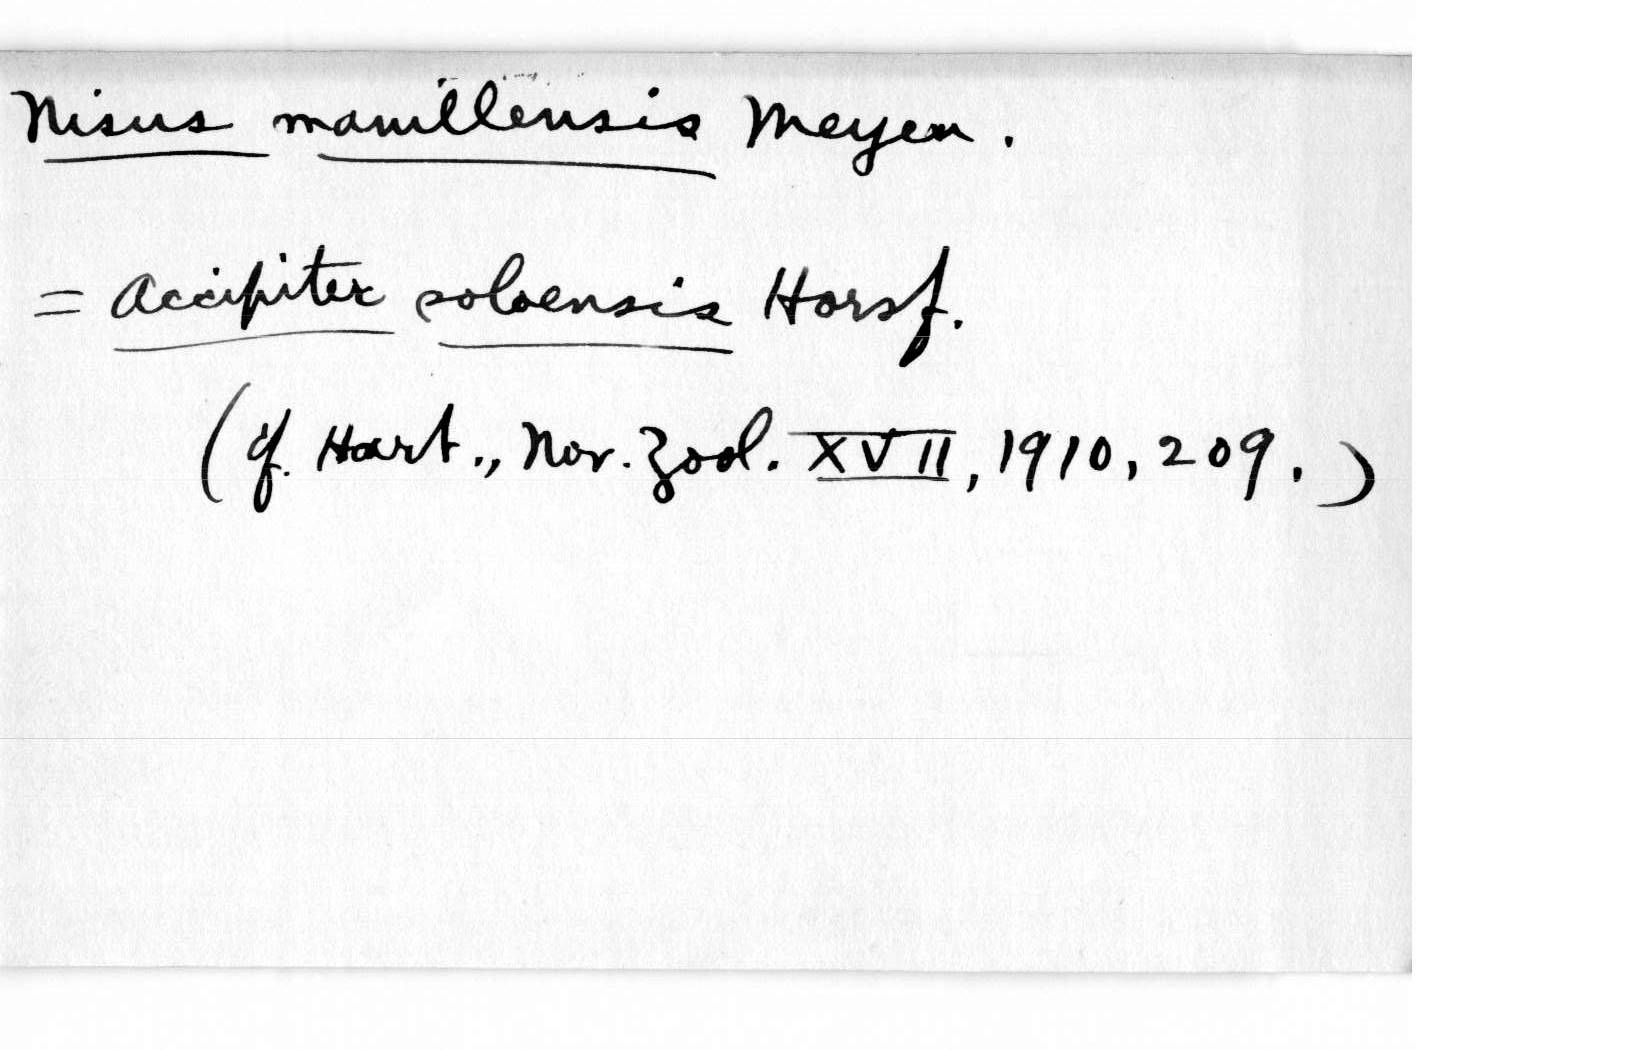 Nisus manillensis Meyen.
= Accipiter soloensis Horsf.
(cf. Hart., Nov. Zool. XVII, 1910, 209.)